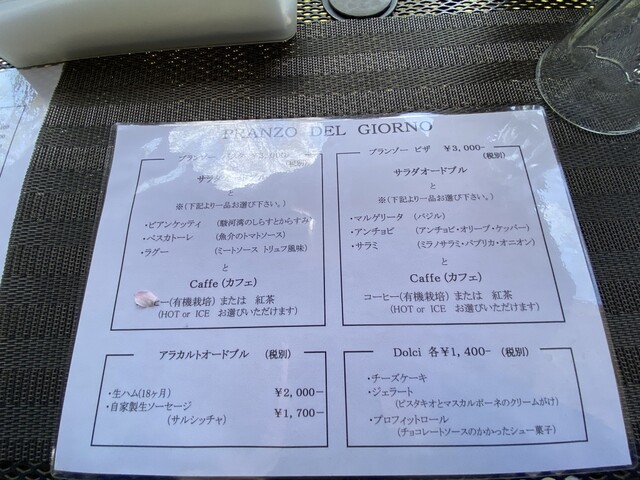 PRANZO DEL GIORNO
プランゾー パスタ ¥3,000-
(税別)
サラダ
と
※(下記より一品お選び下さい。)
・ビアンケッティ (駿河湾のしらすとからすみ)
・ペスカトーレ (魚介のトマトソース)
・ラグー (ミートソース トリュフ風味)
と
Caffe (カフェ)
ーヒー(有機栽培) または 紅茶
(HOT or ICE お選びいただけます)
プランゾー ピザ ¥3,000-
(税別)
サラダオードブル
と
※(下記より一品お選び下さい。)
・マルゲリータ (バジル)
・アンチョビ (アンチョビ・オリーブ・ケッパー)
・サラミ (ミラノサラミ・パプリカ・オニオン)
と
Caffe (カフェ)
コーヒー(有機栽培) または 紅茶
(HOT or ICE お選びいただけます)
アラカルトオードブル (税別)
・生ハム(18ヶ月) ¥2,000-
・自家製生ソーセージ ¥1,700-
(サルシッチャ)
Dolci 各¥1,400- (税別)
・チーズケーキ
・ジェラート
(ピスタキオとマスカルポーネのクリームがけ)
・プロフィットロール
(チョコレートソースのかかったシュー菓子)